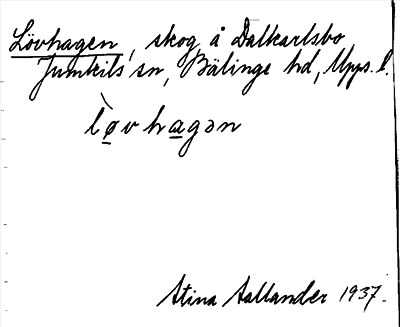 Lövhagen, skog å Dalkarlsbo
Jumkils sn, Bälinge hd, Upps. l.
lø̀vhagən
Stina Aallander 1937.